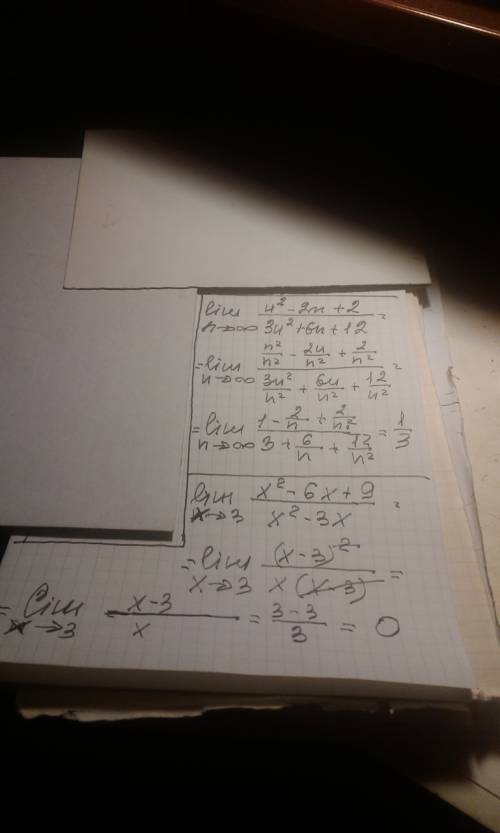 lim n→∞ (n² - 2n + 2)/(3n² + 6n + 12) =
= lim n→∞ (n²/n² - 2n/n² + 2/n²)/(3n²/n² + 6n/n² + 12/n²) =
= lim n→∞ (1 - 2/n + 2/n²)/(3 + 6/n + 12/n²) = 1/3
lim x→3 (x² - 6x + 9)/(x² - 3x) =
= lim x→3 (x-3)²/(x(x-3)) =
= lim x→3 (x-3)/x = (3-3)/3 = 0